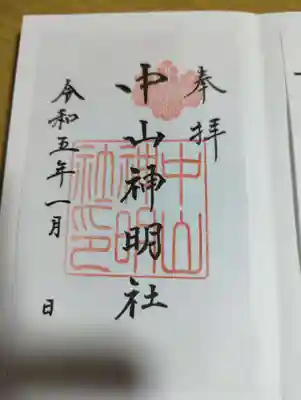 奉拝
中山神明社
令和五年一月 日
中山
神明
社之印